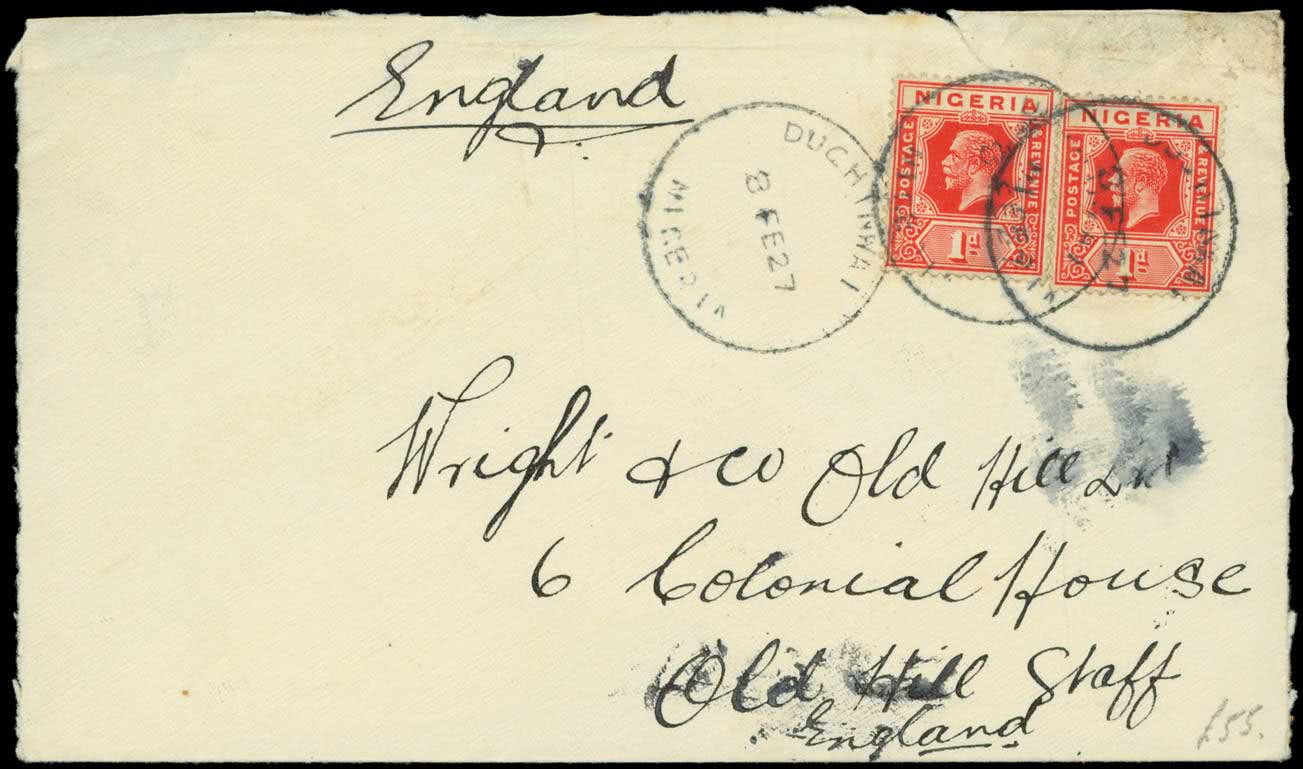 England
NIGERIA NIGERIA
POSTAGE & REVENUE POSTAGE & REVENUE
1d 1d
DUCHINWAI
8 FE 27
NIGERIA
Wright & co Old Hill Ltd
6 Colonial House
Old Hill Staff
England
£55.